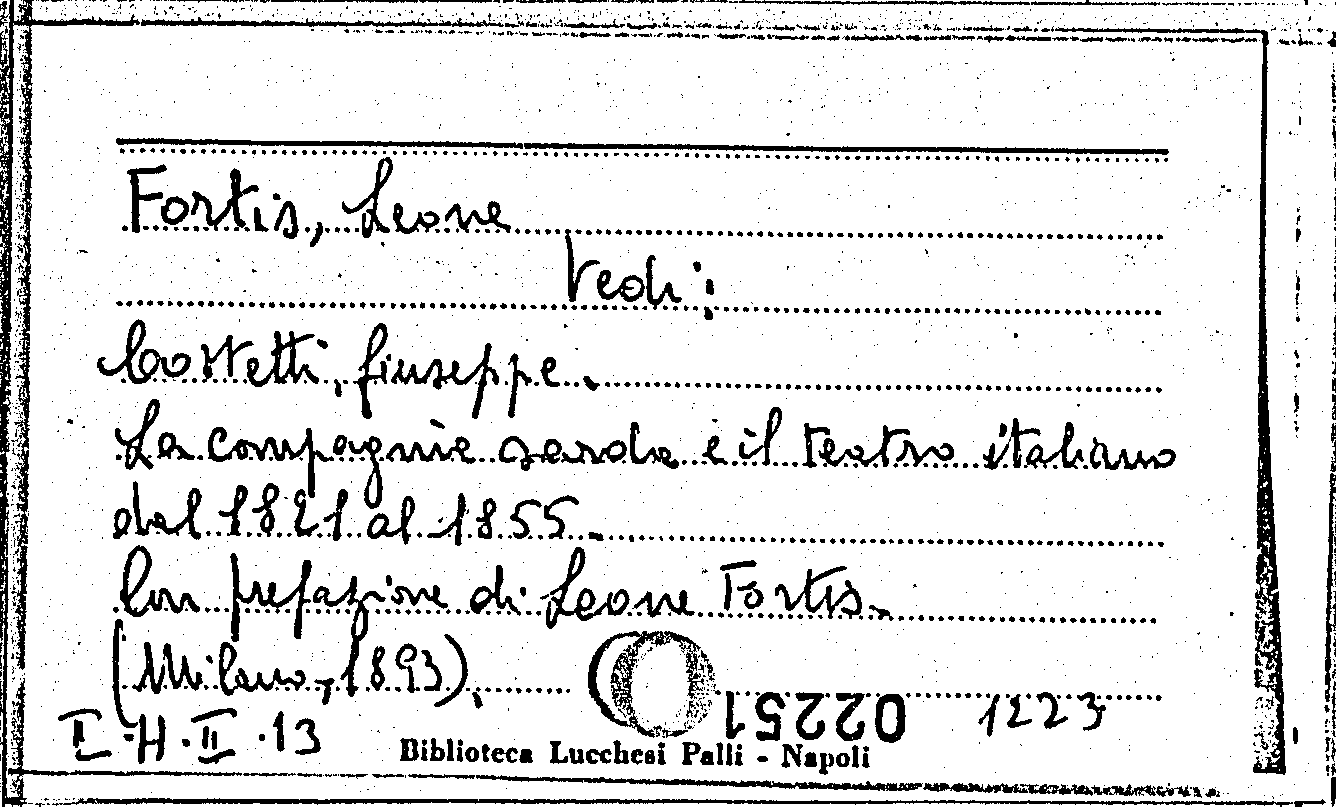 Fortis, Leone
Vedi:
Costetti, Giuseppe.
La compagnia sarda e il teatro italiano
dal 1821 al 1855.
Con prefazione di Leone Fortis.
(Milano, 1893).
02251 1223
II-H.II.13
Biblioteca Lucchesi Palli - Napoli